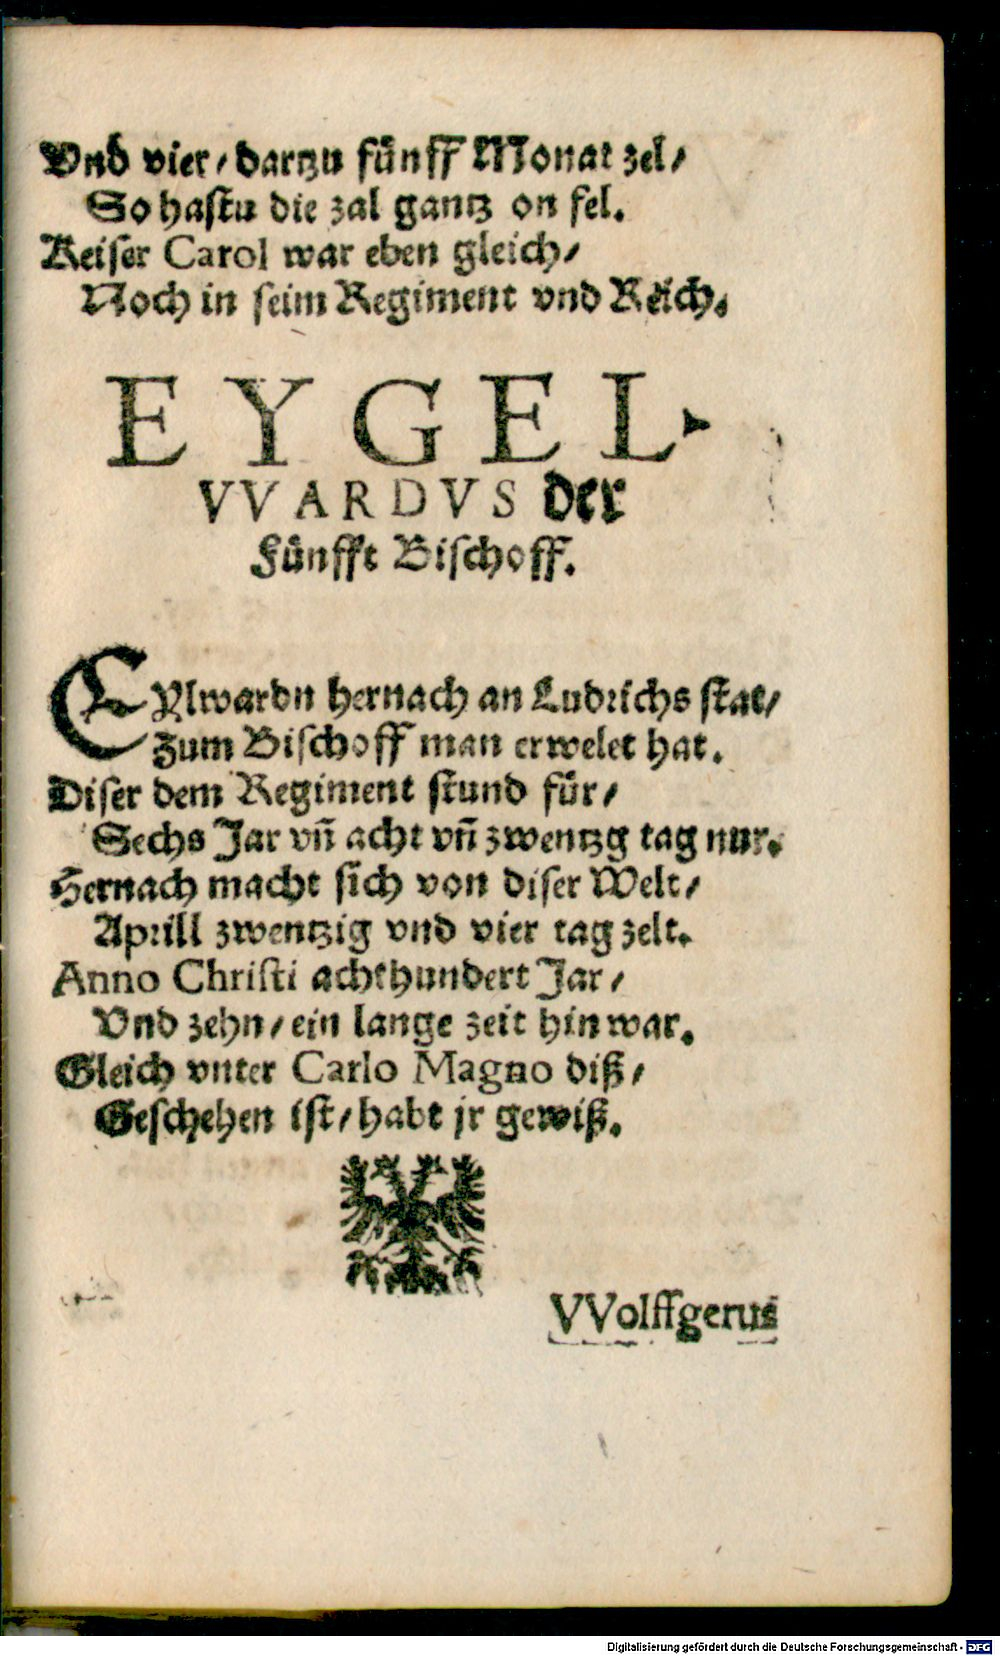 Vnd vier / dartzu fünff Monat zel /
So hastu die zal gantz on fel.
Keiser Carol war eben gleich /
Noch in seim Regiment vnd Reich.
EYGEL-
VVARDVS der
Fünfft Bischoff.
EYlwardn hernach an Ludrichs stat /
Zum Bischoff man erwelet hat.
Diser dem Regiment stund für /
Sechs Jar vñ acht vñ zwentzg tag nur.
Hernach macht sich von diser Welt /
Aprill zwentzig vnd vier tag zelt.
Anno Christi achthundert Jar /
Vnd zehn / ein lange zeit hin war.
Gleich vnter Carlo Magno diß /
Geschehen ist / habt jr gewiß.
VVolffgerus
Digitalisierung gefördert durch die Deutsche Forschungsgemeinschaft - DFG